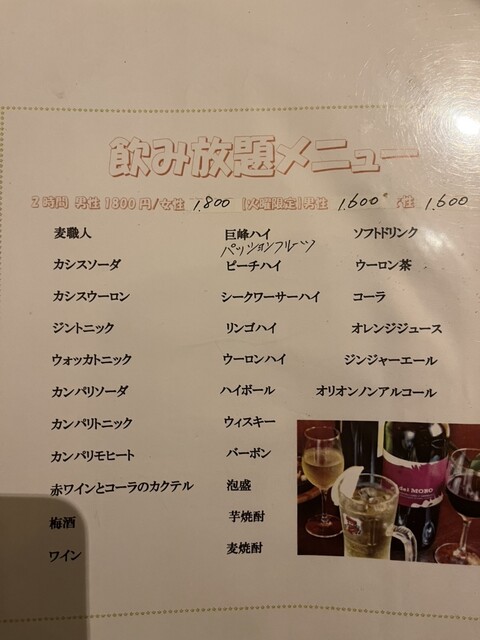 飲み放題メニュー
2時間 男性1800円/女性 1,800 [火曜限定]男性 1,600 性 1,600
麦職人
カシスソーダ
カシスウーロン
ジントニック
ウォッカトニック
カンパリソーダ
カンパリトニック
カンパリモヒート
赤ワインとコーラのカクテル
梅酒
ワイン
巨峰ハイ
パッションフルーツ
ピーチハイ
シークワーサーハイ
リンゴハイ
ウーロンハイ
ハイボール
ウィスキー
バーボン
泡盛
芋焼酎
麦焼酎
ソフトドリンク
ウーロン茶
コーラ
オレンジジュース
ジンジャーエール
オリオンノンアルコール